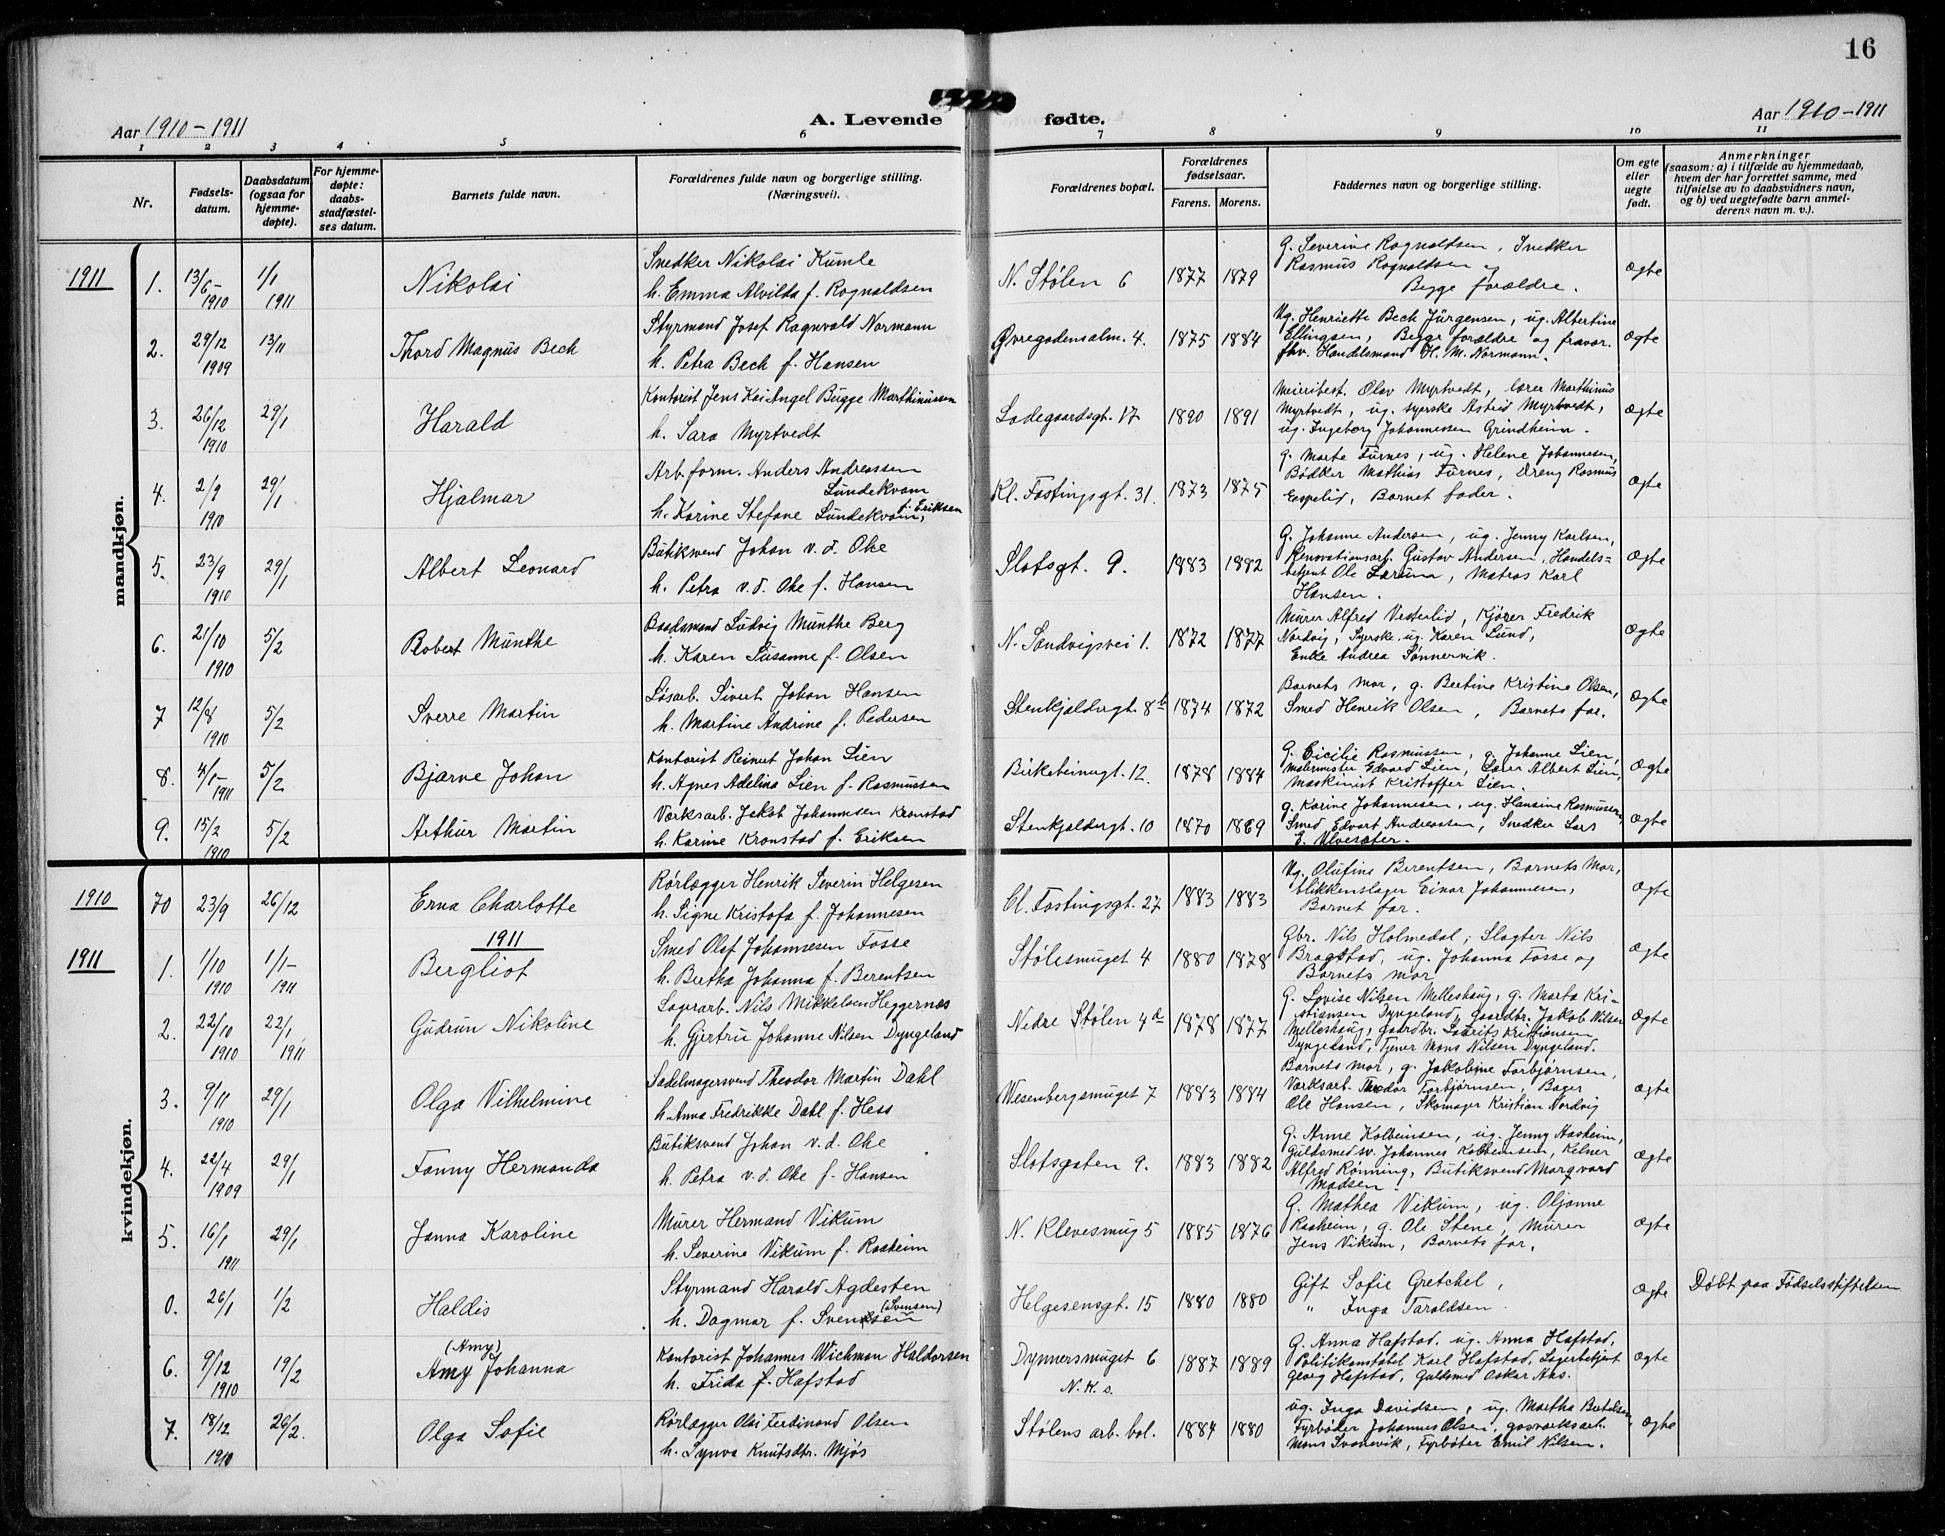 16
Aar 1910-1911
A. Levende fødte.
Aar 1910-1911
1 2 3 4 5 6 7 8 9 10 11
Nr.
Fødsels-
datum.
Daabsdatum
(ogsaa for
hjemme-
døpte).
For hjemme-
døpte:
daabs-
stadfæstel-
ses datum.
Barnets fulde navn.
Forældrenes fulde navn og borgerlige stilling.
(Næringsvei).
Forældrenes bopæl.
Forældrenes
fødselsaar.
Farens. Morens.
Faddernes navn og borgerlige stilling.
Om egte
eller
uegte
født.
Anmerkninger
(saasom: a) i tilfælde av hjemmedaab,
hvem der har forrettet samme, med
tilføielse av to daabsvidners navn,
og b) ved uegtefødte barn anmel-
derens navn m. v.).
mandkjøn.
1911
1. 13/6- 1910 1/1 1911 Nikolai
Snedker Nikolai Kumle
h. Emma Alvilda f. Rognaldsen
N. Stølen 6 1877 1879
G. Severine Rognaldsen, Snedker
Rasmus Rognaldsen og
Begge forældre.
Ægte
2. 29/12 1909 13/11 Thord Magnus Bech
Styrmand Josef Ragnvald Normann
h. Petra Bech f. Hansen
Øvregadensalm. 4. 1875 1884
Ug. Henriette Bech Jürgensen, ug. Albertine
Ellingsen, Begge forældre og fravær.
fhv. Handelsmand H. M. Normann.
Ægte
3. 26/12 1910 29/1 Harald
Kontorist Jens Kai Angel Bugge Marthinussen
h. Sara Myrtvedt
Ladegaardsgt. 17 1890 1891
Meieribest. Olav Myrtvedt, lærer Marthinus
Myrtvedt, ug. syerske Astrid Myrtvedt,
ug. Ingeborg Johannessen Grindheim.
Ægte
4. 2/9 1910 29/1 Hjalmar
Arb.form. Anders Andreassen
Lundekvam
h. Karine Stefane Lundekvam, f. Eriksen
Kl. Fostingsgt. 31. 1873 1875
g. Marte Furnes, ug. Helene Johannesen,
Bødker Mathias Furnes, Dreng Rasmus
Espelid, Barnet fader.
Ægte
5. 23/9 1910 29/1 Albert Leonard
Butiksvend Johan v. d. Ohe
h. Petra v. d. Ohe f. Hansen
Slotsgt. 9. 1883 1882
G. Johanne Andersen, ug. Jenny Karlsen,
Renovationsarb. Gustav Andersen, Handels-
betjent Ole Larum, Matros Karl
Hansen.
Ægte
6. 21/10 1910 5/2 Robert Munthe
Baadsmand Ludvig Munthe Berg
h. Karen Susanne f. Olsen
N. Sandvigsvei 1. 1872 1877
Murer Alfred Vesterlid, Kjører Fredrik
Nordvig, Syerske, ug. Karen Lund,
Enke Andrea Sønnervik.
Ægte
7 12/8 1910 5/2 Sverre Martin
Løsarb. Sivert Johan Hansen
h. Martine Andrine f. Pedersen
Stenkjældergt. 8b 1874 1872
Barnets Mor, g. Bertine Kristine Olsen,
Smed Henrik Olsen, Barnets far.
Ægte
8. 4/1- 1911 5/2 Bjarne Johan
Kontorist Reinert Johan Lien
h. Agnes Adelina Lien f. Rasmussen
Birkebeinergt. 12. 1878 1884
G. Cicilie Rasmussen, g. Johanne Lien,
malermester Edvard Lien, Lærer Albert Lien,
Maskinist Kristoffer Lien.
Ægte
9. 15/2 1910 5/2 Arthur Martin
Værksarb. Jakob Johannesen Kronstad
h. Karine Kronstad f. Eriksen
Stenkjældergt. 10 1870 1869
g. Karine Johannesen, ug. Hansine Rasmussen,
Smed Edvart Andreassen, Snedker Lars
E. Ulvesæter.
Ægte
kvindekjøn.
1910
70 23/9 26/12 Erna Charlotte
Rørlægger Henrik Severin Helgesen
h. Signe Kristofa f. Johannesen
Cl. Fostingsgt. 27 1883 1883
Ug. Olufine Berentsen, Barnets Mor,
blikkenslager Einar Johannesen,
Barnet far.
Ægte
1911
1911
1. 1/10 1910 1/1- 1911 Bergliot
Smed Olaf Johannesen Fosse
h. Bertha Johanna f. Berentsen
Stølesmuget 4 1880 1878
Gbr. Nils Holmedal, Slagter Nils
Bragstad, ug. Johanna Fosse og
Barnets mor
Ægte
2. 22/10 1910 22/1 1911 Gudrun Nikoline
Lagerarb. Nils Mikkelsen Heggernæs
h. Gjertru Johanne Nilsen Dyngeland
Nedre Stølen 4d 1878 1877
G. Lovise Nilsen Melleshaug, g. Marta Kri-
stiansen Dyngeland, Gaardbr. Jakob Nilsen
Melleshaug, Gaardbr. Laurits Kristiansen
Dyngeland, Tjener Mons Nilsen Dyngeland.
Ægte
3. 9/11 1910 29/1 Olga Vilhelmine
Sadelmagersvend Theodor Martin Dahl
h. Anna Fredrikke Dahl f. Hess
Wesenbergsmuget 7 1883 1884
Barnets mor, g. Jakobine Torbjørnsen,
Værksarb. Theodor Torbjørnsen, Bager
Ole Hansen, Skomager Kristian Nordvig
Ægte
4. 22/4 1909 29/1 Fanny Hermanda
Butiksvend Johan v. d. Ohe
h. Petra v. d. Ohe f. Hansen
Slotsgaten 9. 1883 1882
G. Anne Kolbeinsen, ug. Jenny Aasheim,
Guldsmedsv. Johannes Kolbeinsen, Kelner
Alfred Rønning, Butiksvend Marqvard
Madsen.
Ægte
5. 16/1 1911 29/1 Janna Karoline
Murer Hermand Vikum
h. Severine Vikum f. Raaheim
N. Klevesmug 5 1885 1876
G. Mathea Vikum, ug. Oljanne
Raaheim, g. Ole Stene, Murer
Jens Vikum, Barnets far.
Ægte
0. 26/1 1/2 Haldis
Styrmand Harald Agdesten
h. Dagmar f. Svendsen (Svensen)
Helgesensgt. 15 1880 1880
Gift Sofie Gretchel,
" Inga Taraldsen.
Ægte
Døbt paa Fødselsstiftelsen
6. 9/12 1910 19/2 (Amy) Amy Johanna
Kontorist Johannes Wichman Haldorsen
h. Frida f. Hafstad
Dynnersmuget 6 1887 1889
N. K. s.
G. Anna Hafstad, ug. Anna Hafstad,
Politikonstabel Karl Hafstad, Lagerbetjent
Georg Hafstad, Guldsmed Oskar Ahs.
Ægte
7. 18/12 1910 26/2. Olga Sofie
Rørlægger Olai Ferdinand Olsen
h. Synva Knutsdtr. Mjøs
Stølens arb. bol. 1884 1880
ug. Inga Davidsen, ug. Martha Bertelsen,
Fyrbøder Johannes Olsen, gasværksarb.
Mons Svanevik, Fyrbøter Emil Nilsen.
Ægte